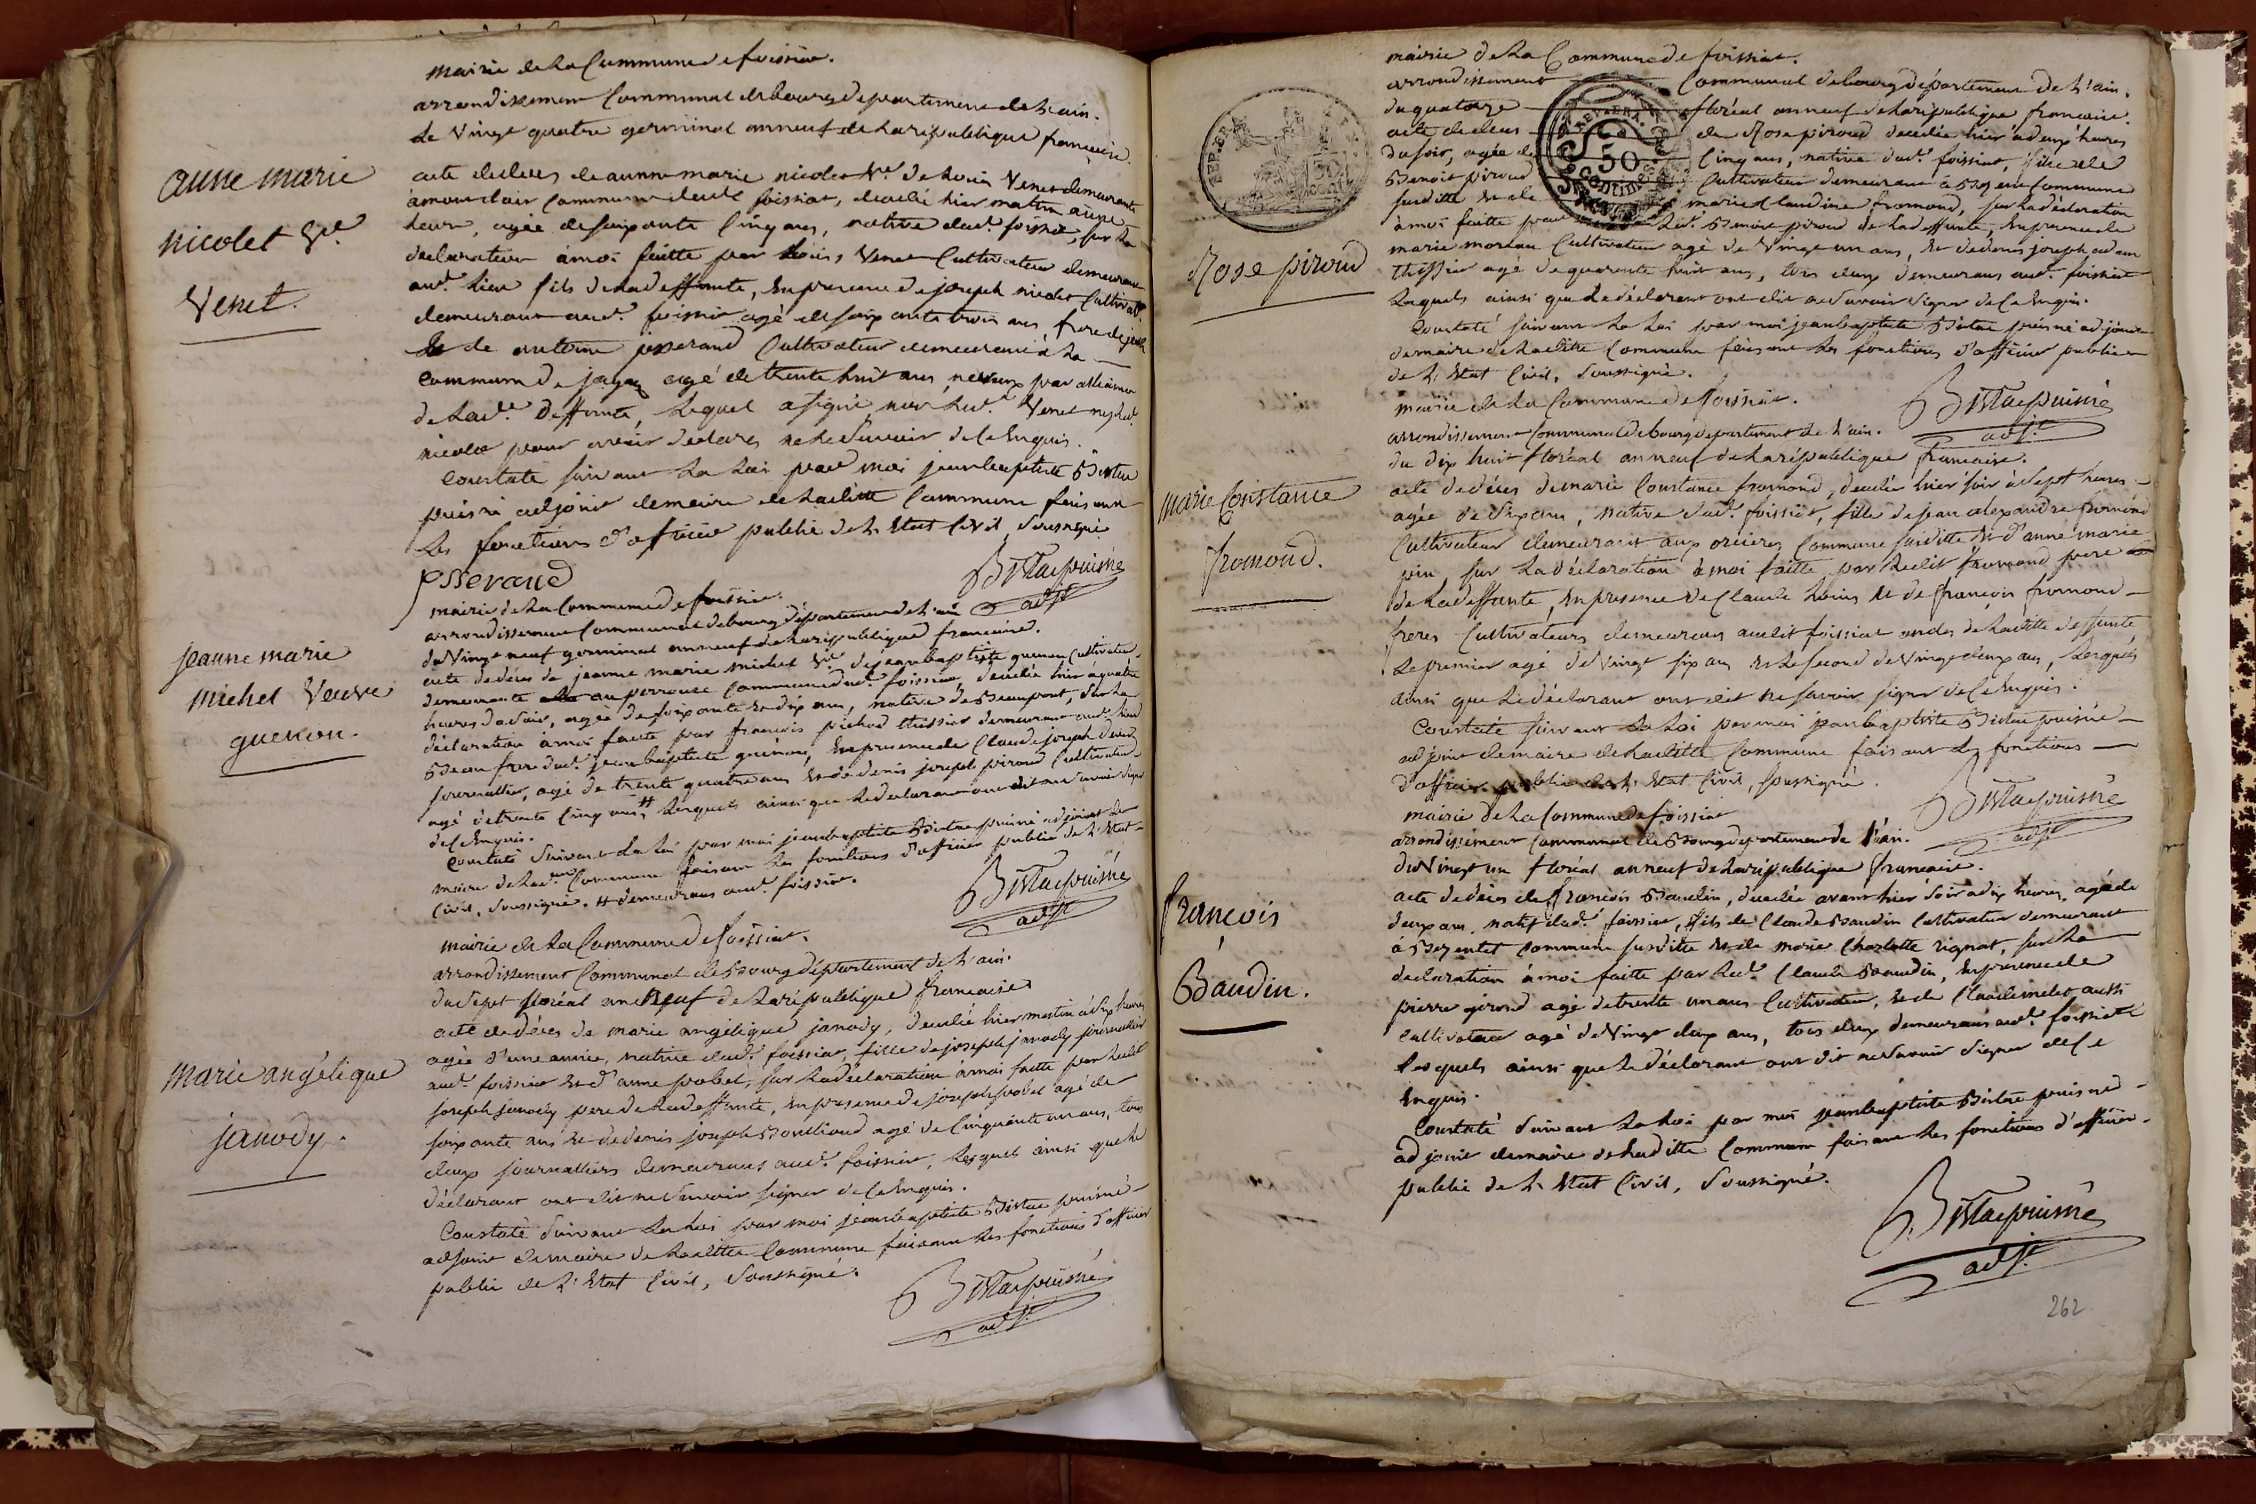 mairie de la Commune de foissiat.
arrondissement Communal de bourg departement de l'ain.
Le Vingt quatre germinal an neuf de la republique françaisse.
anne marie
nicolet Ve.
Venet.
acte de deces de anne marie nicolet Ve. de Louis Venet demeurante
commune dudt. foissiat, decedée hier matin à une
heure, agée de soixante Cinq ans, native dudt. foissiat, sur la
declaration à moi faitte par Louis, Venet Cultivateur demeurant
audt. lieu fils de la deffunte, En presence de joseph nicolet Cultivatr.
demeurant audt. foissiat agé de soixante trois ans frere
de antoine josserand Cultivateur demeurant à la
Commune de jayat agé de trente huit ans, neveux par alliance
de ladte. Deffunte, Lequel a signé, non Ledt. Venet
nicolet pour avoir declarez ne le Savoir de Ce Enquis.
Constaté suivant La Loi par moi jean baptiste Bistac
puisné adjoint de maire de laditte Commune faisant
Les fonctions d'officier public de L'Etat Civil, Soussigné.
Bistac puisné
adjt.
jeanne marie
michel Veuve
guenon.
mairie de La Commune de foissiat.
arrondissement Communal de bourg departement de l'ain
du Vingt neuf germinal an neuf de la republique francaise.
acte de déces de jeanne marie michel Ve. de jean baptiste guenon Cultivateur
demeurante au perrouse Commune dudt. foissiat, decedée hier à quatre
heures du Soir, agée de soixante et dix ans, native de Beaupont, Sur La
déclaration à moi faitte par françois pichod thissier demeurant audt. lieu
Beau frere dudt. jean baptiste guenon, En presence de Claude joseph
journallier, agé de trente quatre ans et de denis joseph piroud Cultivateur
agé de trente Cinq ans # Lesquels ainsi que Le declarant ont dit ne Savoir signer
de Ce Enquis.
Constaté Suivant La Loi par moi jean baptiste Bistac puisné adjoint de
maire de ladte. Commune faisant Les fonctions d'officier public de L'Etat
Civil, Soussigné. # demeurans audt. foissiat.
Bistac puisné
adjt.
mairie de La Commune de foissiat.
arrondissement Communal de Bourg département de L'ain.
du Sept floréal an Neuf de La république francaise
marie angélique
janody.
acte de déces de marie angélique janody, decedée hier matin à dix heures
agée d'une année, native dudt. foissiat, fille de joseph janody journalier
audt. foissiat et d'anne pobel, sur La déclaration à moi faitte par Ledit
joseph janody pere de La deffunte, En presence de joseph pobel agé de
soixante ans et de denis joseph Bouilloud agé de Cinquante un ans, tous
deux journalliers demeurans audt. foissiat, Lesquels ainsi que Le
déclarant ont dit ne Savoir signer de Ce Enquis.
Constaté Suivant La Loi par moi jean baptiste Bistac puisné
adjoint de maire de Laditte Commune faisant Les fonctions d'officier
public de L'Etat Civil, Soussigné.
Bistac puisné
adjt.
mairie de La Commune de foissiat.
arrondissement Communal de bourg département de L'ain.
du quatorze floréal an neuf de La république francaise.
REP. FRA.
50
Centimes
Rose piroud
acte de deces de Rose piroud decedée hier à deux heures
du soir, agée de Cinq ans, native dudt. foissiat, fille de
Benoit piroud Cultivateur demeurant à Commune
susditte et de marie Claudine fromond, sur La déclaration
à moi faitte par Ledt. Benoit piroud de La deffunte, En presence de
marie moreau Cultivateur agé de Vingt un ans, et de denis joseph
thissier agé de quarante huit ans, tous deux demeurans audt. foissiat
Lesquels ainsi que Le déclarant ont dit ne Savoir Signer de Ce Enquis.
Constaté suivant La Loi par moi jean baptiste Bistac puisné adjoint
de maire de Laditte Commune faisant Les fonctions d'officier public
de L'Etat Civil, Soussigné.
Bistac puisné
adjt.
mairie de La Commune de foissiat.
arrondissement Communal de bourg departement de L'ain.
du dix huit floréal an neuf de La république francaise.
marie Constance
fromond.
acte de déces de marie Constance fromond, decedée hier soir à Sept heures
agée de Six ans, native dudt. foissiat, fille de jean alexandre fromond
Cultivateur demeurant aux orcieres Commune susditte et d'anne marie
pin, sur La déclaration à moi faitte par Ledit fromond pere
de La deffunte, En presence de Claude Louis et de françois fromond
freres Cultivateurs demeurans audit foissiat oncles de Laditte deffunte
Le premier agé de Vingt six ans et Le Second de Vingt deux ans, Lesquels
ainsi que Le déclarant ont dit ne Savoir signer de Ce Enquis.
Constaté suivant La Loi par moi jean baptiste Bistac puisné
adjoint de maire de Laditte Commune faisant Les fonctions
d'officier public de L'Etat Civil, soussigné.
Bistac puisné
adjt.
mairie de La Commune de foissiat
arrondissement Communal de Bourg departement de L'ain.
du Vingt un floréal an neuf de La république francaise.
françois
Baudin.
acte de déces de françois Baudin, decedée avant hier Soir à dix heures, agé de
deux ans, natif dudt. foissiat, fils de Claude Baudin Cultivateur demeurant
à Bezentet Commune susditte et de marie Charlotte rignat, sur La
declaration à moi faitte par Ledt. Claude Baudin, En presence de
pierre girod agé de trente un ans Cultivateur, et de Claude aussi
Cultivateur agé de Vingt deux ans, tous deux demeurans audt. foissiat
Lesquels ainsi que Le déclarant ont dit ne Savoir Signer de Ce
Enquis.
Constaté Suivant La Loi par moi jean baptiste Bistac puisné
adjoint de maire de Laditte Commune faisant Les fonctions d'officier
public de L'Etat Civil, Soussigné.
Bistac puisné
adjt.
262